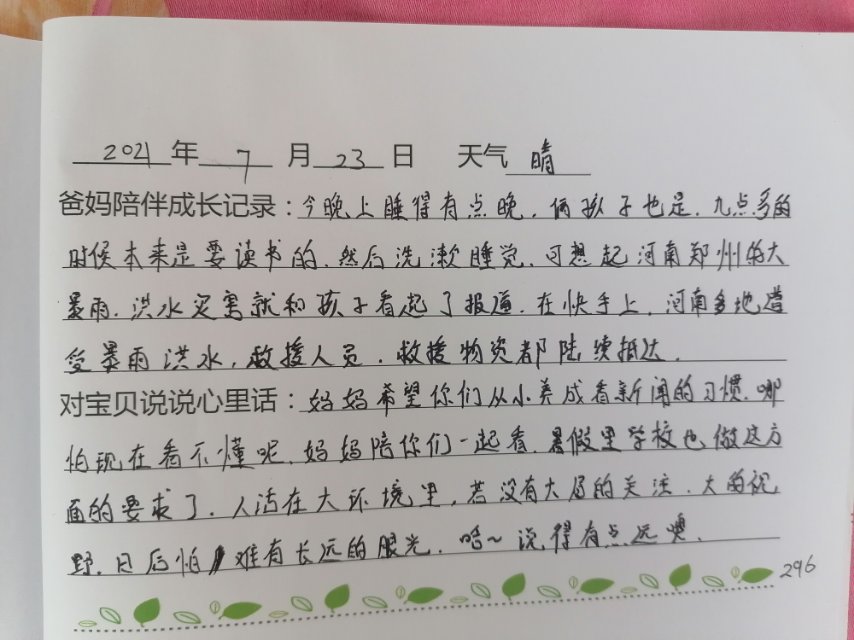 2021年 7 月 23 日 天气 晴
爸妈陪伴成长记录：今晚上睡得有点晚，俩孩子也是，九点多的
时候本来是要读书的，然后洗漱睡觉，可想起河南郑州的大
暴雨，洪水灾害就和孩子看起了报道，在快手上，河南多地遭
受暴雨洪水，救援人员，救援物资都陆续抵达。
对宝贝说说心里话：妈妈希望你们从小养成看新闻的习惯，哪
怕现在看不懂呢，妈妈陪你们一起看，暑假里学校也做这方
面的要求了，人活在大环境里，若没有大局的关注，大的视
野，日后怕难有长远的眼光，哈~说得有点远噢。
296